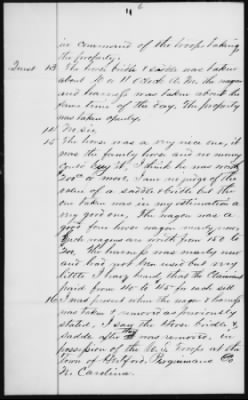 6
in command of the troops taking
the property.
Quest 13 The horse bridle & saddle was taken
about 9 or 10 o'clock A.M. the wagon
and harness was taken about the
same time of the day. The property
was taken openly.
14 No sir,
15 The horse was a very nice one, it
was the family horse and no money
could buy it. I think he was worth
200 or more. I am no judge of the
value of a saddle & bridle but the
one taken was in my estimation a
very good one. The wagon was a
good four horse wagon nearly new,
such wagons are worth from 150 to
200. the harness was nearly new
and had not been used but very
little I have heard, that the Claimant
paid from 40 to 45 for each sett
16 I was present when the wagon & harness
was taken & removed as previously
stated, I say the Horse bridle &
saddle after they was removed, in
possession of the U.S. troops at the
Town of Hertford, Perquimans Co
N. Carolina.